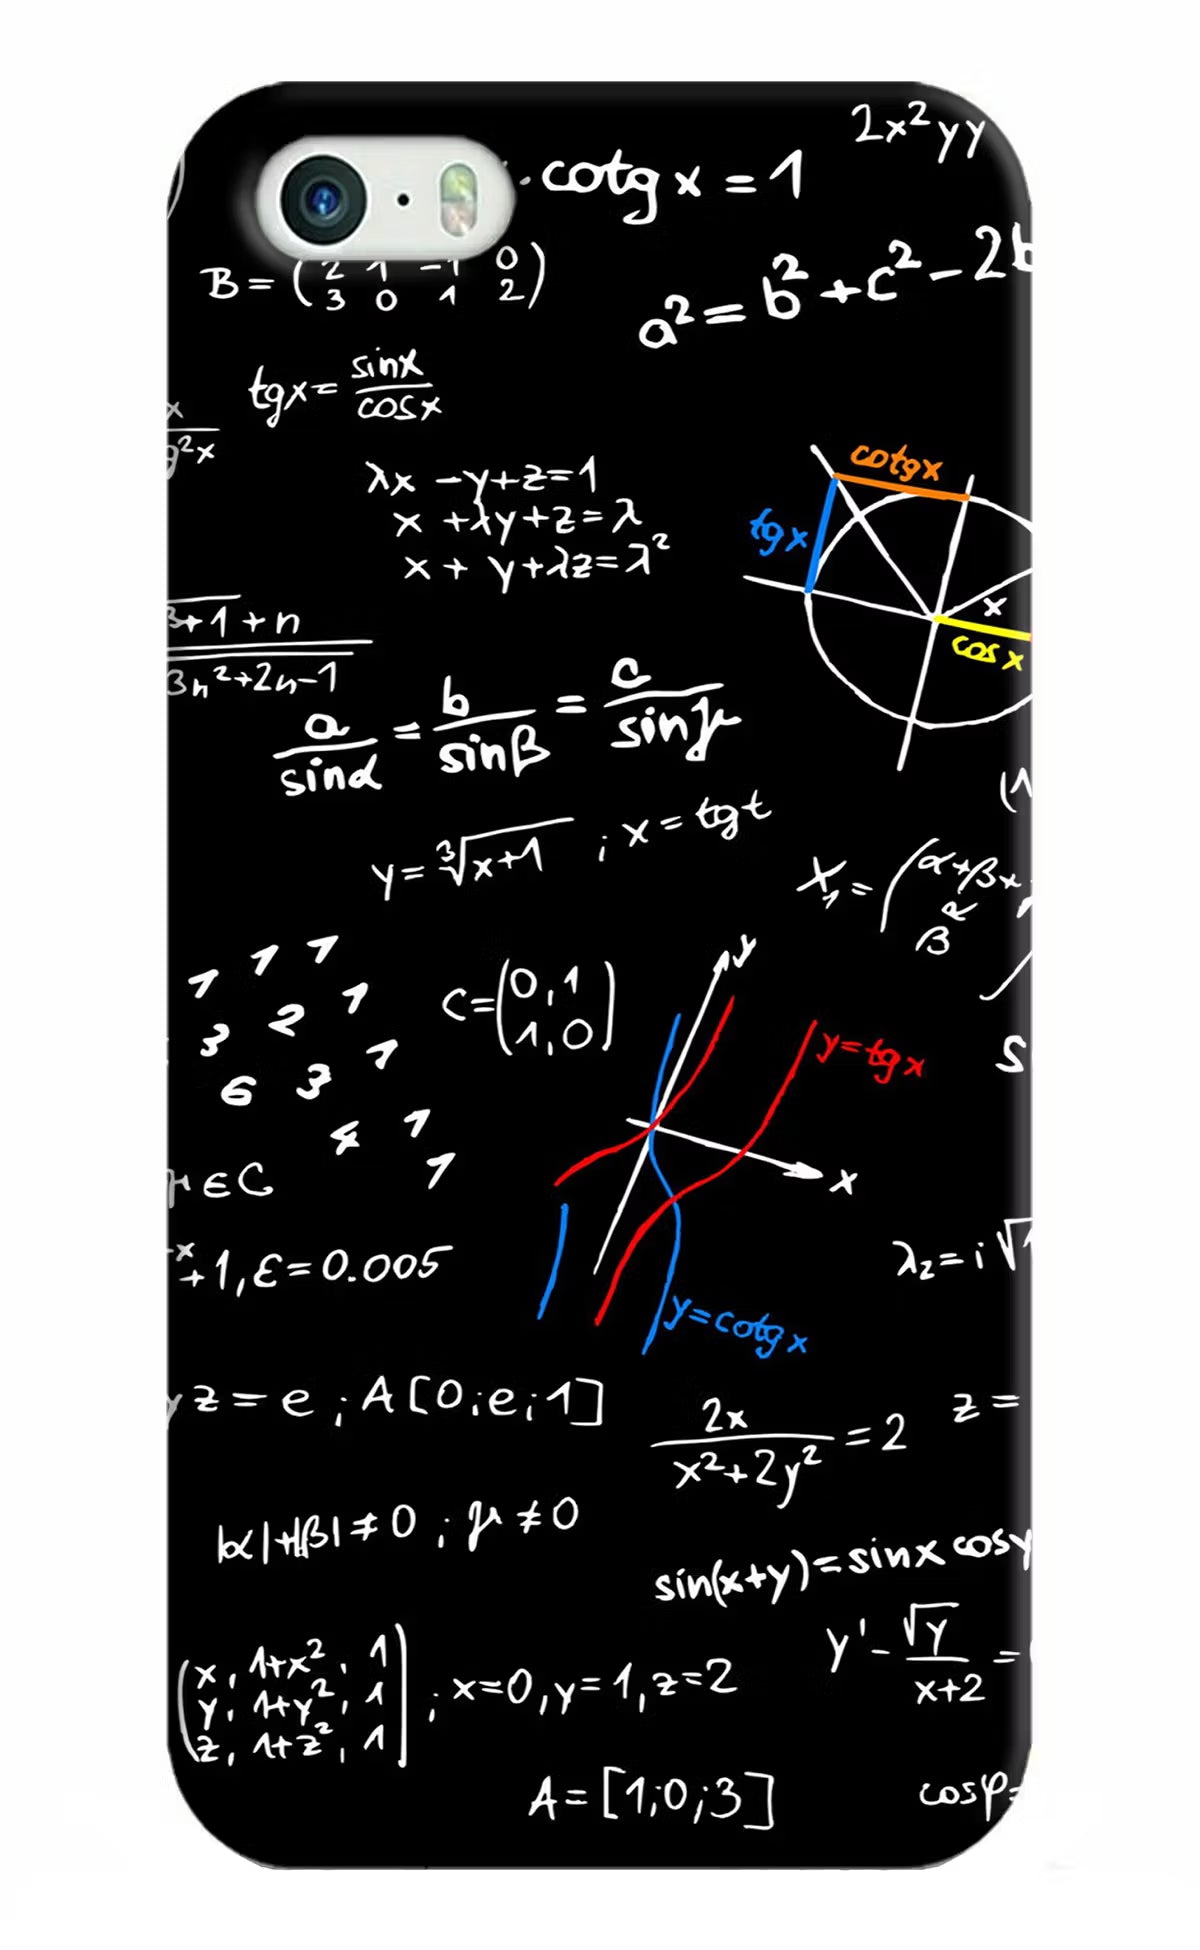 cotg x = 1
2x²yy
B = (2 1 -1 0
3 0 1 2)
a² = b² + c² - 2b
tgx = sinx
cosx
x
g²x
λx - y + z = 1
x + λy + z = λ
x + y + λz = λ²
cotgx
tgx
x
cos x
3+1 + n
3n²+2n-1
a/sinα = b/sinβ = c/sinγ
y = ∛x+1 ; x = tgt
X₁ = (α+β+
β
1 1 1
3 2 1
6 3 1
4 1
1
C = (0,1
1,0)
y
y = tgx
x
S
∈ C
+1, ε = 0.005
λ₂ = i√
y = cotgx
z = e ; A[0;e;1]
2x
x²+2y² = 2
z =
|α|+|β| ≠ 0 ; μ ≠ 0
sin(x+y) = sinx cosy
y' - √y
x+2 =
(x, 1+x², 1
y, 1+y², 1
z, 1+z², 1) ; x=0, y=1, z=2
A = [1;0;3]
cosφ=